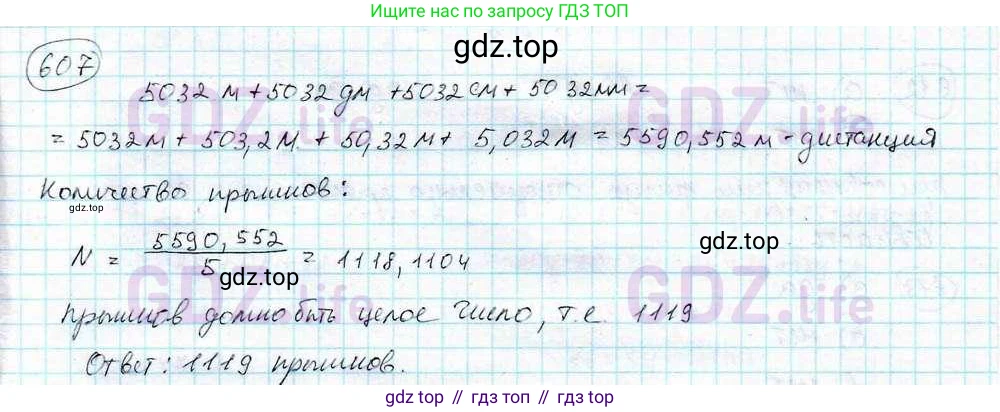 Ищите нас по запросу ГДЗ ТОП
gdz.top
607
5032 м + 5032 дм + 5032 см + 5032 мм =
= 5032 м + 503,2 м + 50,32 м + 5,032 м = 5590,552 м - дистанция
Количество прыжков:
gdz.top
N = 5590,552 / 5 = 1118,1104
gdz.top
gdz.top
GDZ.life
GDZ.life
GDZ.life
GDZ.life
Прыжков должно быть целое число, т.е. 1119
Ответ: 1119 прыжков.
gdz.top // гдз топ // gdz.top // гдз топ